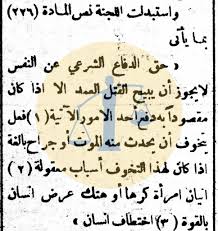 واستبدلت اللجنة نص المادة (٢٢٦)
بما يأتى
« حق الدفاع الشرعي عن النفس
لايجوز أن يبيح القتل العمد الا اذا كان
مقصوداً به دفع أحد الامور الآتية (١) فعل
يتخوف ان يحدث منه الموت أو جراح بالغة
اذا كان لهذا التخوف أسباب معقولة (٢)
اتيان امرأة كرها أو هتك عرض انسان
بالقوة (٣) اختطاف انسان »